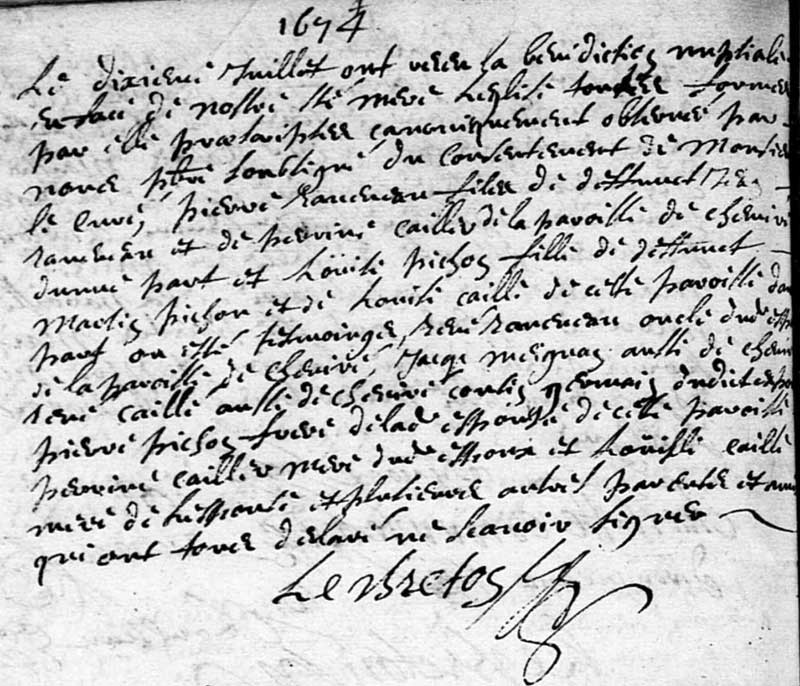 1674
Le dixiesme Juillet ont receu la benediction nuptialle
en face de nostre ste mere Leglise toutes formes
par elle prescriptes canoniquement observes par
nous pbre soubsigné du consentement de Monsieur
le curé, pierre Ranceneau filz de deffunct
Ranceneau et de perrine cailler de la paroisse de cheviré
dunne part et Louise pichon fille de deffunct
Martin pichon et de Louise caille de cette paroisse dau
part on esté tesmoings, René Ranceneau oncle dudt esp
de la paroisse de cheviré, Jacq mesgnan aussi de chevi
rené caille aussi de cheviré cousin germain dudict espo
pierre pichon frere de lade espouse de cette paroisse
perrine cailler mere dudt espoux et Louisse caille
mere de Lespouse et plusieurs autres parents et amis
qui ont tous declaré ne scavoir signer
Lebreton